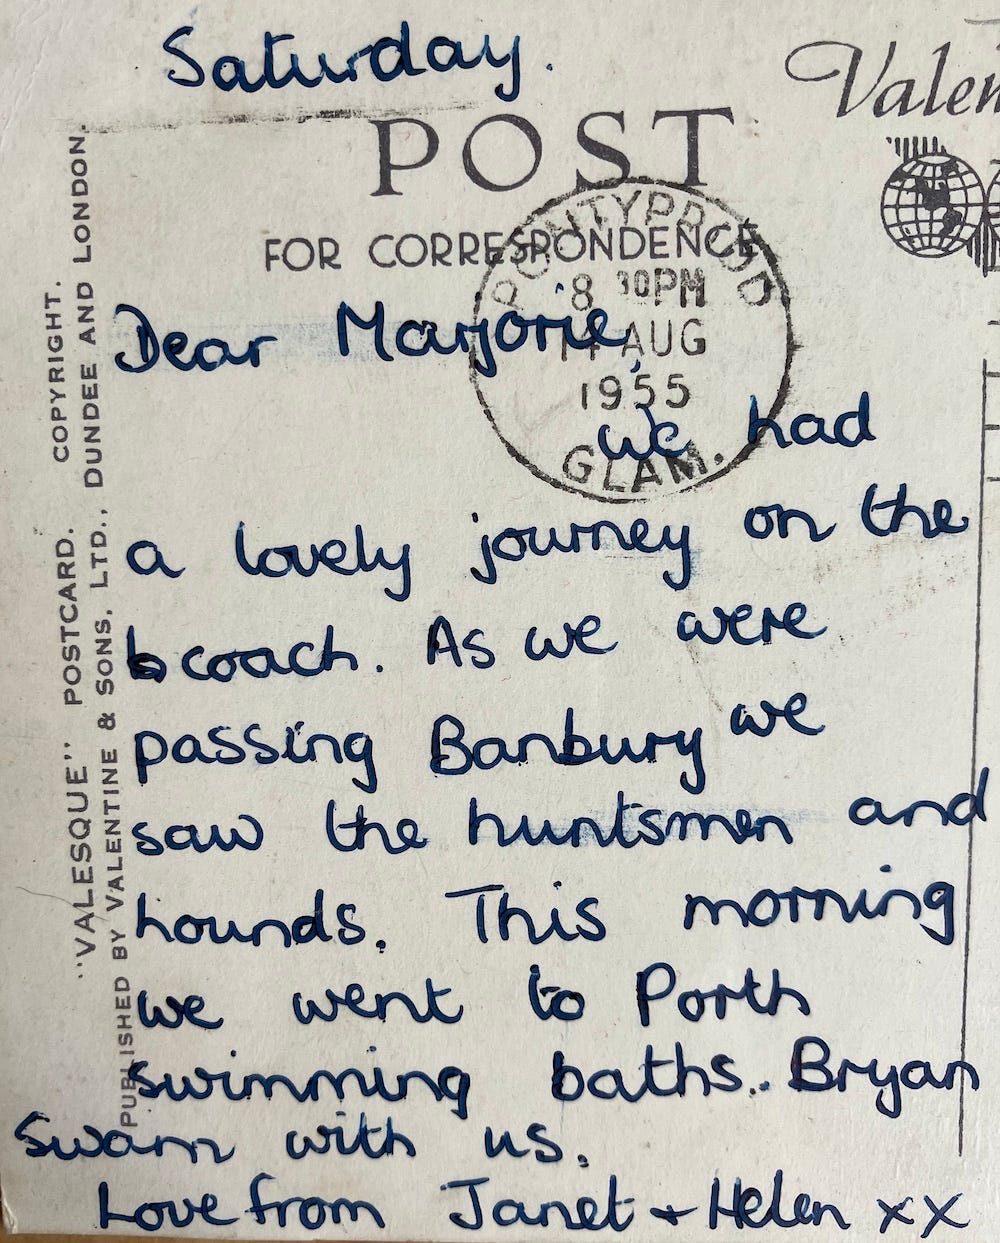 Saturday.
Valen
POST
FOR CORRESPONDENCE
PONTYPRIDD
8 30PM
AUG
1955
GLAM.
Dear Marjorie,
we had
a lovely journey on the
coach. As we were
passing Banbury we
saw the huntsmen and
hounds. This morning
we went to Porth
swimming baths. Bryan
swam with us.
Love from Janet + Helen xx
"VALESQUE" POSTCARD. COPYRIGHT.
PUBLISHED BY VALENTINE & SONS, LTD., DUNDEE AND LONDON.